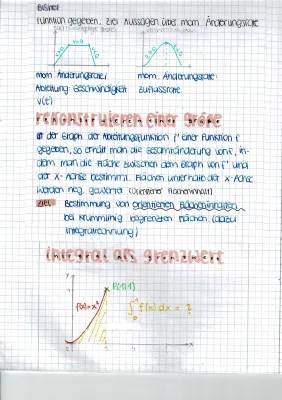 Bisher
Funktion gegeben, Ziel Aussagen über mom. Änderungsrate
v>0 v=0 v<0
v>0 v<0
mom. Änderungsrate / mom. Änderungsrate
Ableitung: Geschwindigkeit Zuflussrate
v(t)
rekonstruieren einer Größe
Ist der Graph der Ableitungsfunktion f' einer Funktion f
gegeben, so erhält man die Gesamtänderung von f, in-
dem man die Fläche zwischen dem Graph von f' und
der x-Achse bestimmt. Flächen unterhalb der x-Achse
werden neg. gewertet (orientierter Flächeninhalt)
Ziel: Bestimmung von orientierten Flächeninhalten
bei krummlinig begrenzten Flächen. (dazu
Integralrechnung)
Integral als Grenzwert
y
P(1|1)
f(x)=x²
∫₀¹ f(x) dx = ?
x